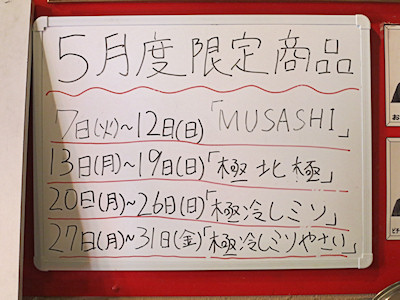 5月度限定商品
7日(火)~12日(日)「MUSASHI」
13日(月)~19日(日)「極北極」
20日(月)~26日(日)「極冷しミソ」
27日(月)~31日(金)「極冷しミソやさい」